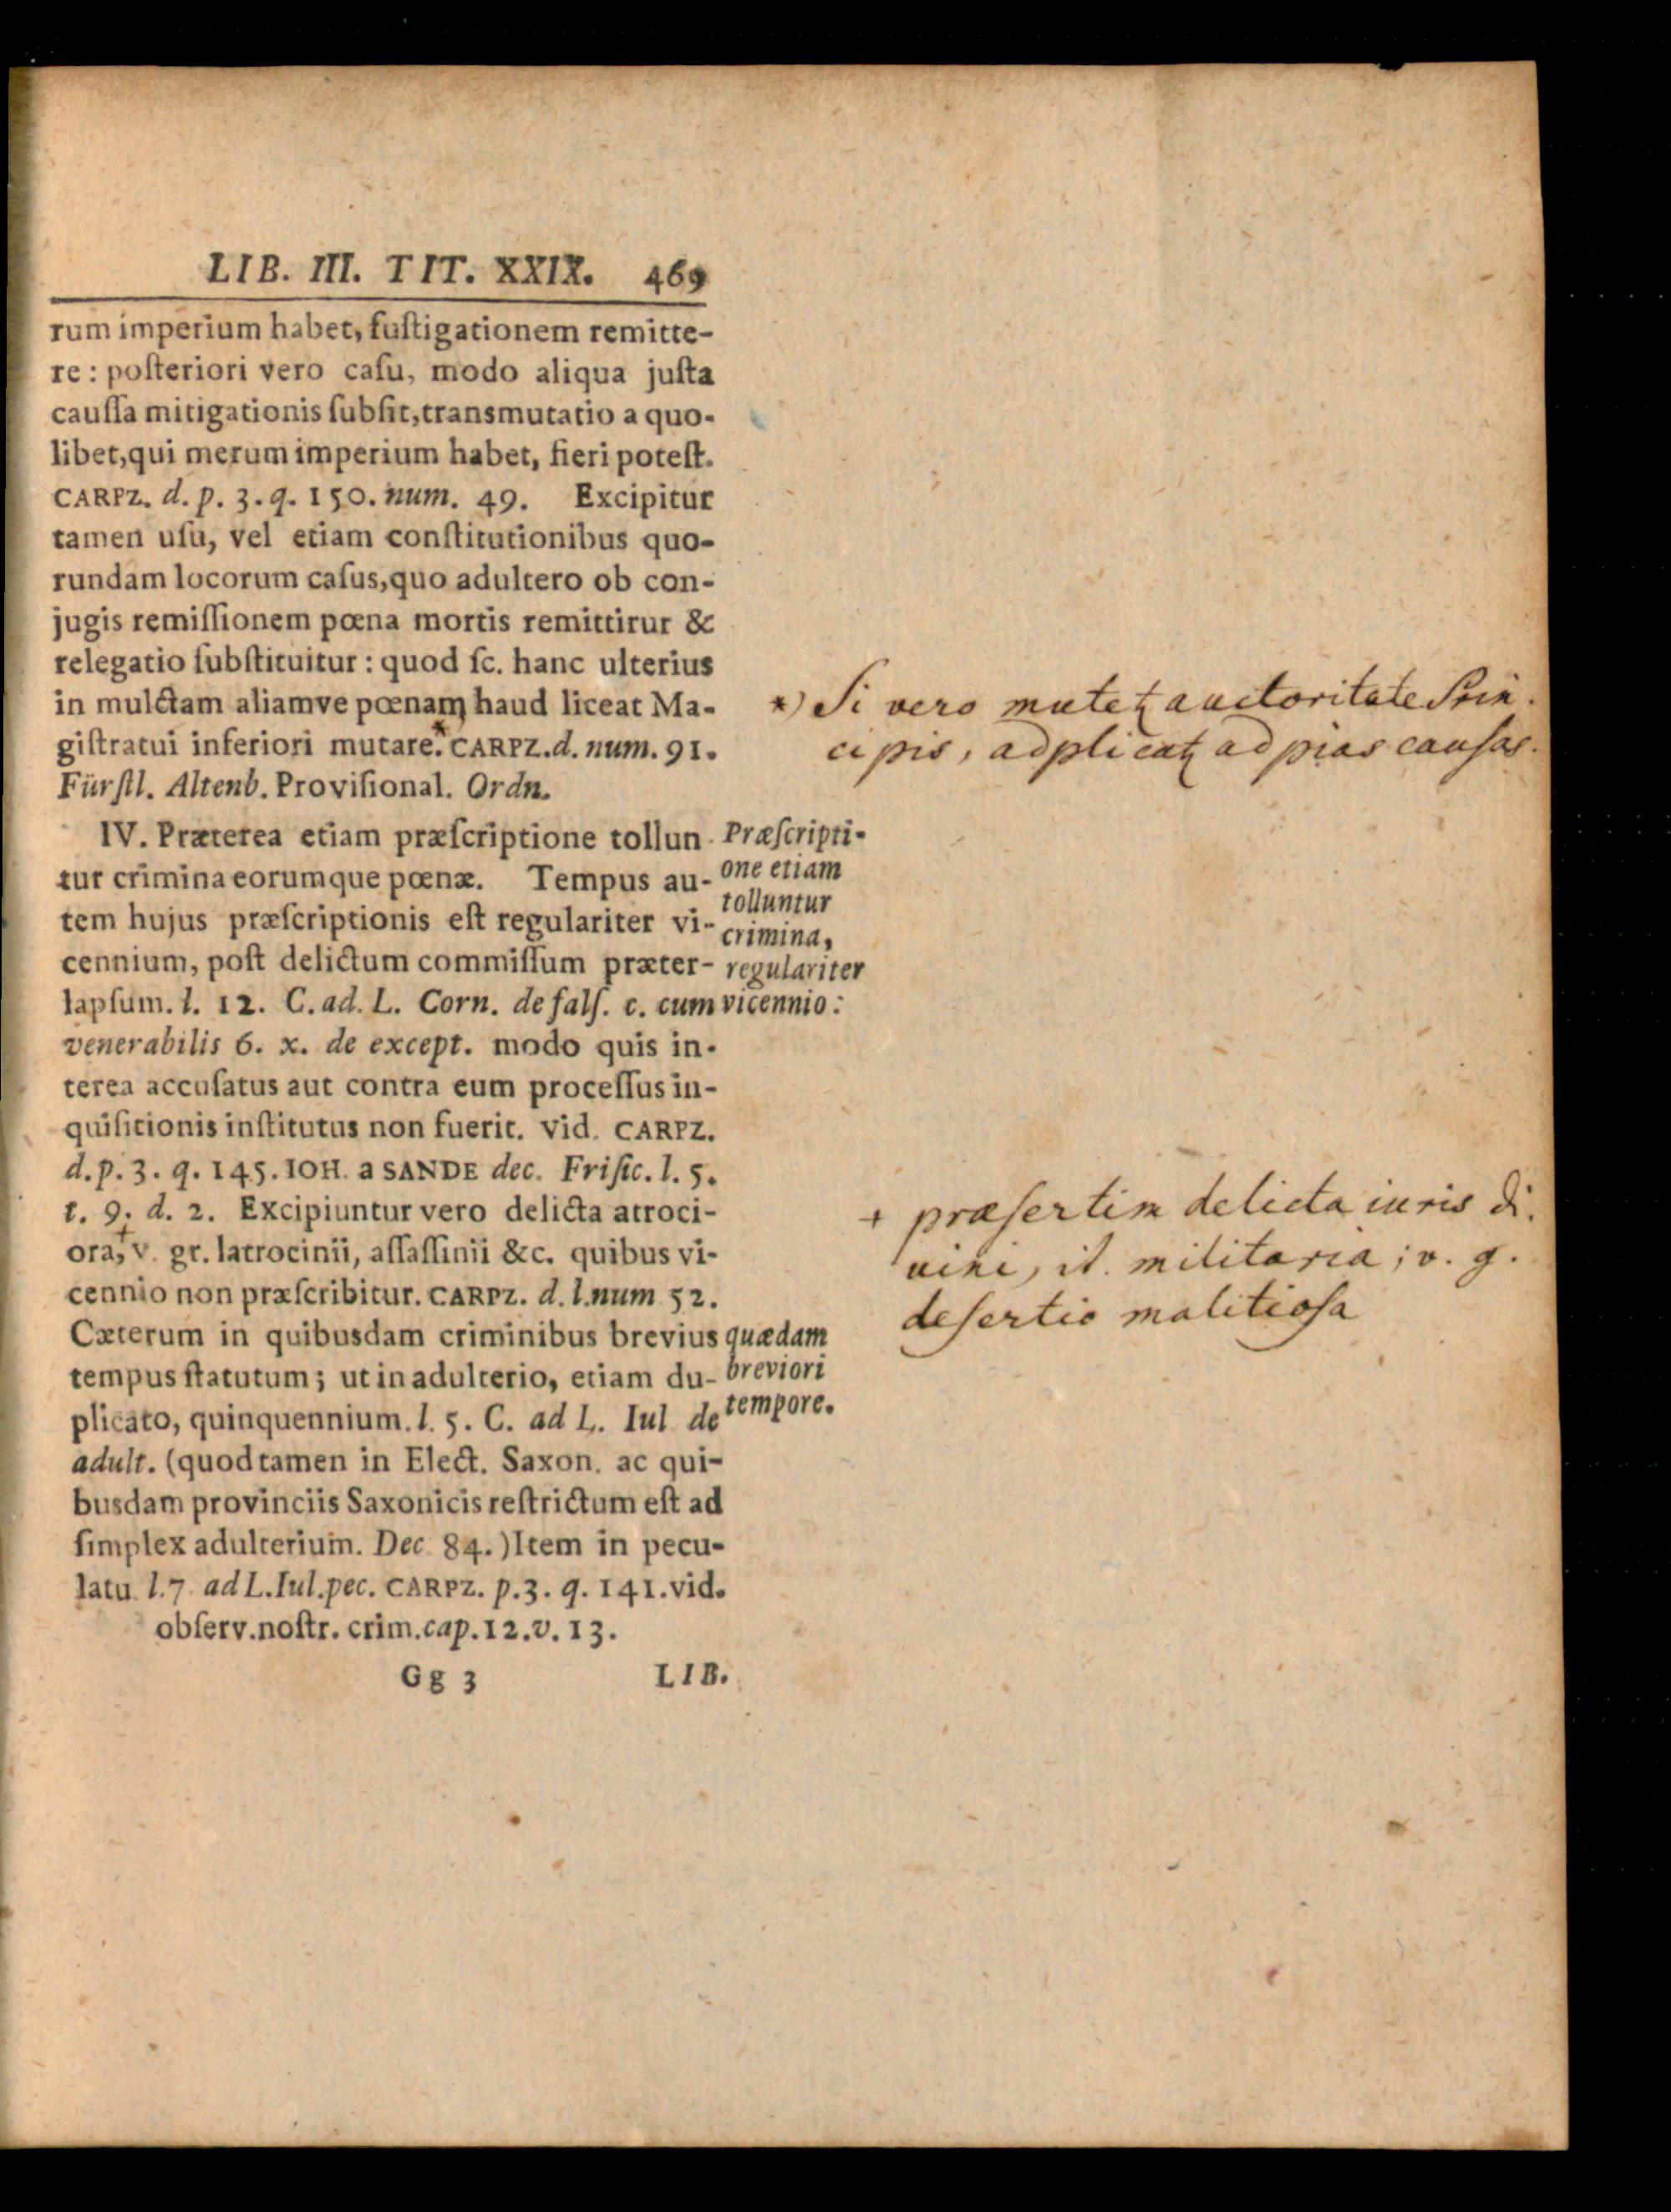 LIB. III. TIT. XXIX. 469
rum imperium habet, fuſtigationem remitte-
re: poſteriori vero caſu, modo aliqua juſta
cauſſa mitigationis ſubſit, transmutatio a quo-
libet, qui merum imperium habet, fieri poteſt.
CARPZ. d. p. 3. q. 150. num. 49. Excipitur
tamen uſu, vel etiam conſtitutionibus quo-
rundam locorum caſus, quo adultero ob con-
jugis remiſſionem pœna mortis remittirur &
relegatio ſubſtituitur: quod ſc. hanc ulterius
in mulctam aliamve pœnam haud liceat Ma-
giſtratui inferiori mutare.* CARPZ. d. num. 91.
Fürſtl. Altenb. Proviſional. Ordn.
*) Si vero mutetꝶ auctoritate Prin-
cipis, adplicatꝶ ad pias cauſas.
IV. Præterea etiam præſcriptione tollun
tur crimina eorumque pœnæ. Tempus au-
tem hujus præſcriptionis eſt regulariter vi-
cennium, poſt delictum commiſſum præter-
lapſum. l. 12. C. ad. L. Corn. de falſ. c. cum
venerabilis 6. x. de except. modo quis in-
terea accuſatus aut contra eum proceſſus in-
quiſitionis inſtitutus non fuerit. vid. CARPZ.
d. p. 3. q. 145. IOH. a SANDE dec. Friſic. l. 5.
t. 9. d. 2. Excipiuntur vero delicta atroci-
ora,+ v. gr. latrocinii, aſſaſſinii &c. quibus vi-
cennio non præſcribitur. CARPZ. d. l. num 52.
Cæterum in quibusdam criminibus brevius
tempus ſtatutum; ut in adulterio, etiam du-
plicato, quinquennium. l. 5. C. ad L. Iul de
adult. (quod tamen in Elect. Saxon. ac qui-
busdam provinciis Saxonicis reſtrictum eſt ad
ſimplex adulterium. Dec 84.) Item in pecu-
latu. l. 7. ad L. Iul. pec. CARPZ. p. 3. q. 141. vid.
obſerv. noſtr. crim. cap. 12. v. 13.
Præſcripti-
one etiam
tolluntur
crimina,
regulariter
vicennio:
+ præſertim delicta iuris di-
vini, it. militaria; v. g.
deſertio malitioſa
quædam
breviori
tempore.
Gg 3 LIB.